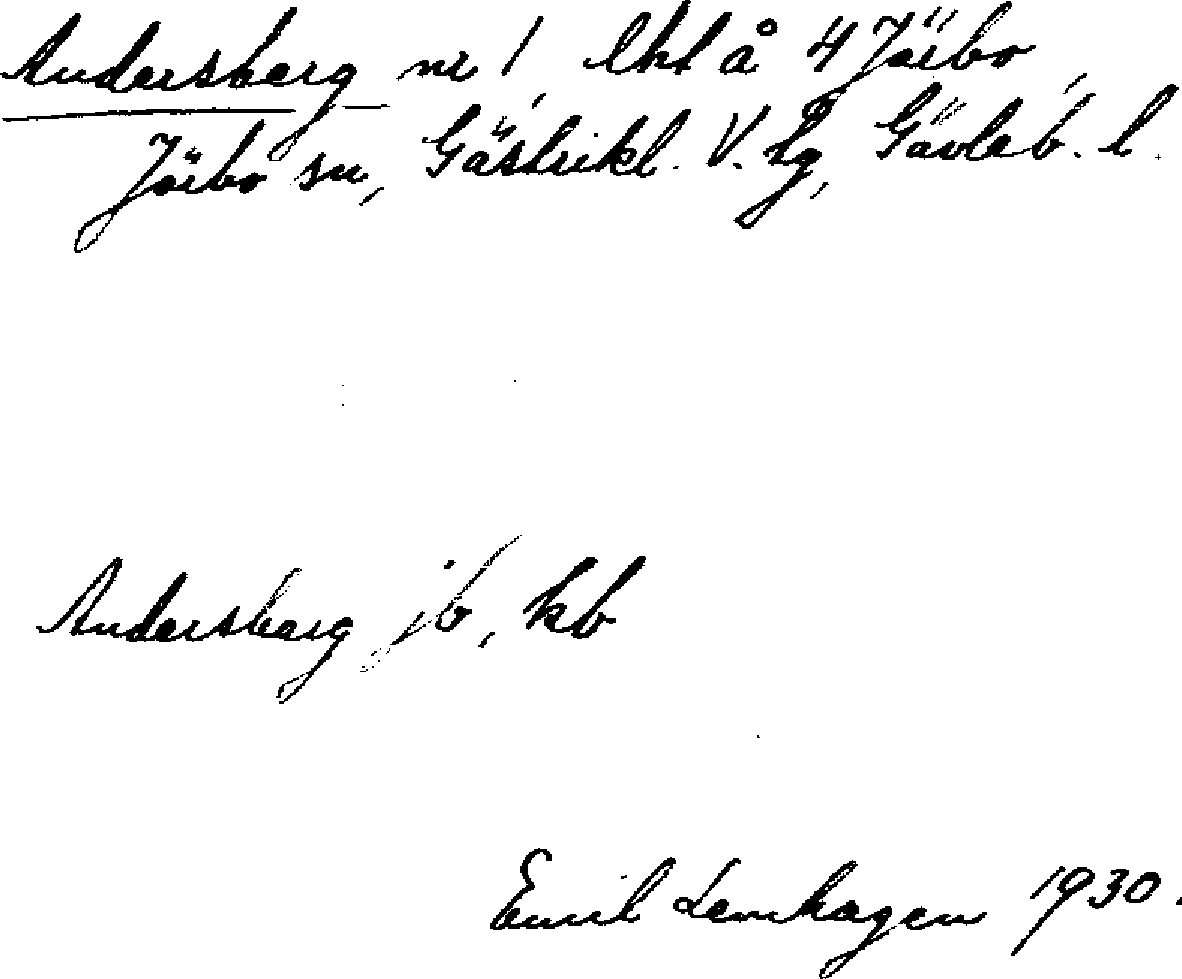 Andersberg nr 1, lht å 4 Järbo,
Järbo sn, Gästrikl. V. tg, Gävleb. l.
Andersberg jb, kb
Emil Lenhagen 1930.